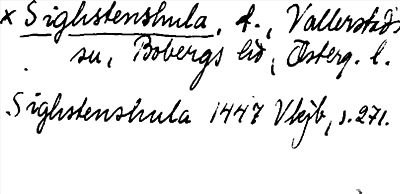 x Sighstenshula, f., Vallerstads
su, Bobergs hd, Österg. l.
Sighstenshula 1447 Vkjb, s. 271.